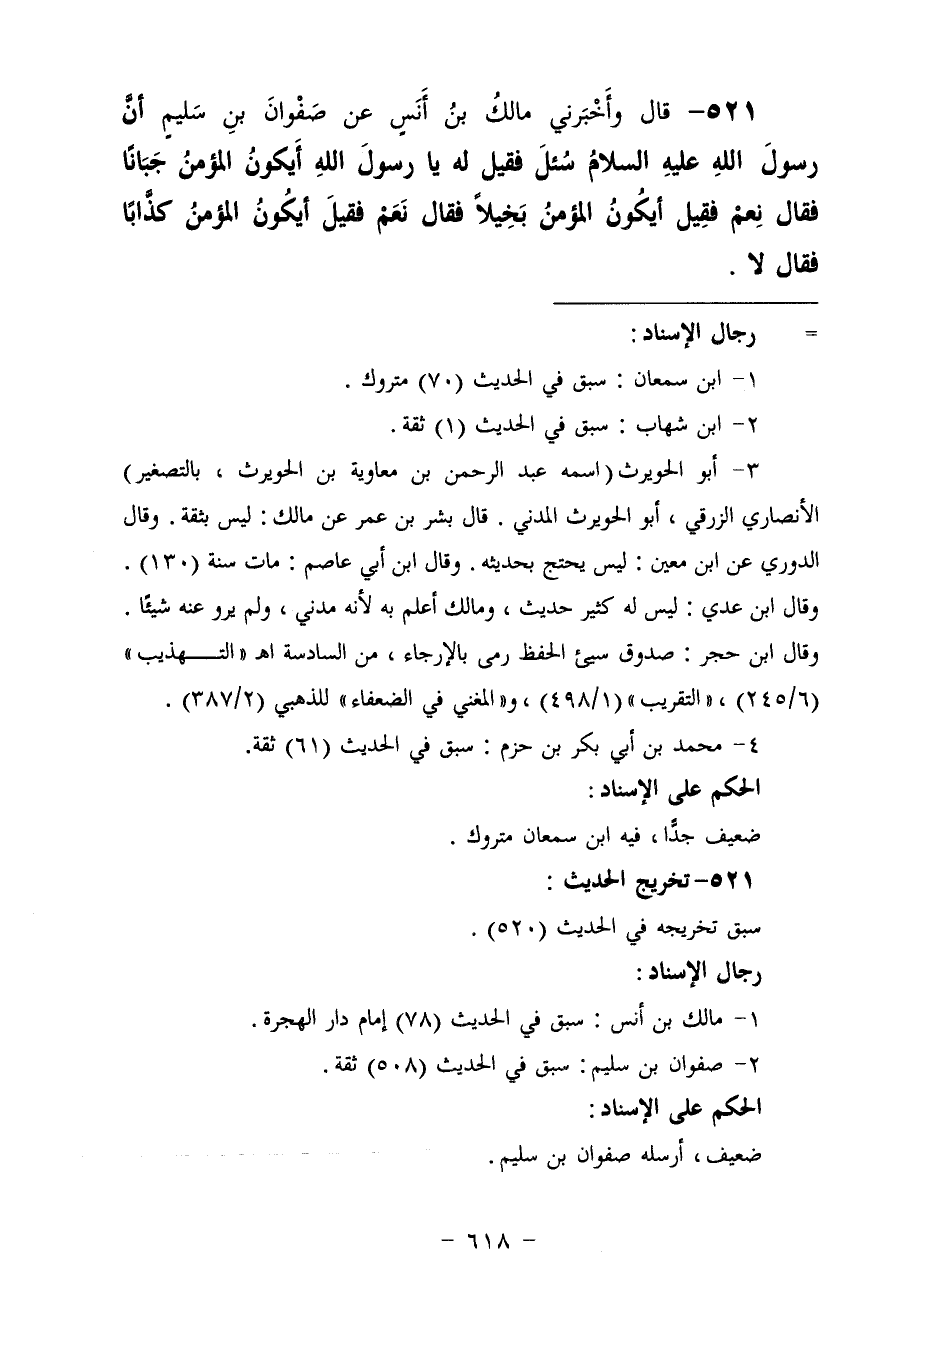 ٥٢١- قال وأَخْبَرني مالكُ بنُ أَنَسٍ عن صَفْوانَ بنِ سَليمٍ أنَّ
رسولَ اللهِ عليهِ السلامُ سُئلَ فقيل له يا رسولَ اللهِ أَيكونُ المؤمنُ جَبَانًا
فقال نِعمْ فقِيل أيكُونُ المؤمنُ بَخِيلاً فقال نَعَمْ فقيلَ أيكُونُ المؤمنُ كذَّابًا
فقال لا .
= رجال الإسناد :
١- ابن سمعان : سبق في الحديث (٧٠) متروك .
٢- ابن شهاب : سبق في الحديث (١) ثقة .
٣- أبو الحويرث (اسمه عبد الرحمن بن معاوية بن الحويرث ، بالتصغير)
الأنصاري الزرقي ، أبو الحويرث المدني . قال بشر بن عمر عن مالك : ليس بثقة . وقال
الدوري عن ابن معين : ليس يحتج بحديثه . وقال ابن أبي عاصم : مات سنة (١٣٠) .
وقال ابن عدي : ليس له كثير حديث ، ومالك أعلم به لأنه مدني ، ولم يرو عنه شيئًا .
وقال ابن حجر : صدوق سيئ الحفظ رمى بالإرجاء ، من السادسة اهـ «التـــهذيب»
(٢٤٥/٦) ، «التقريب» (٤٩٨/١) ، و«المغني في الضعفاء» للذهبي (٣٨٧/٢) .
٤- محمد بن أبي بكر بن حزم : سبق في الحديث (٦١) ثقة.
الحكم على الإسناد :
ضعيف جدًّا ، فيه ابن سمعان متروك .
٥٢١- تخريج الحديث :
سبق تخريجه في الحديث (٥٢٠) .
رجال الإسناد :
١- مالك بن أنس : سبق في الحديث (٧٨) إمام دار الهجرة .
٢- صفوان بن سليم : سبق في الحديث (٥٠٨) ثقة .
الحكم على الإسناد :
ضعيف ، أرسله صفوان بن سليم .
- ٦١٨ -